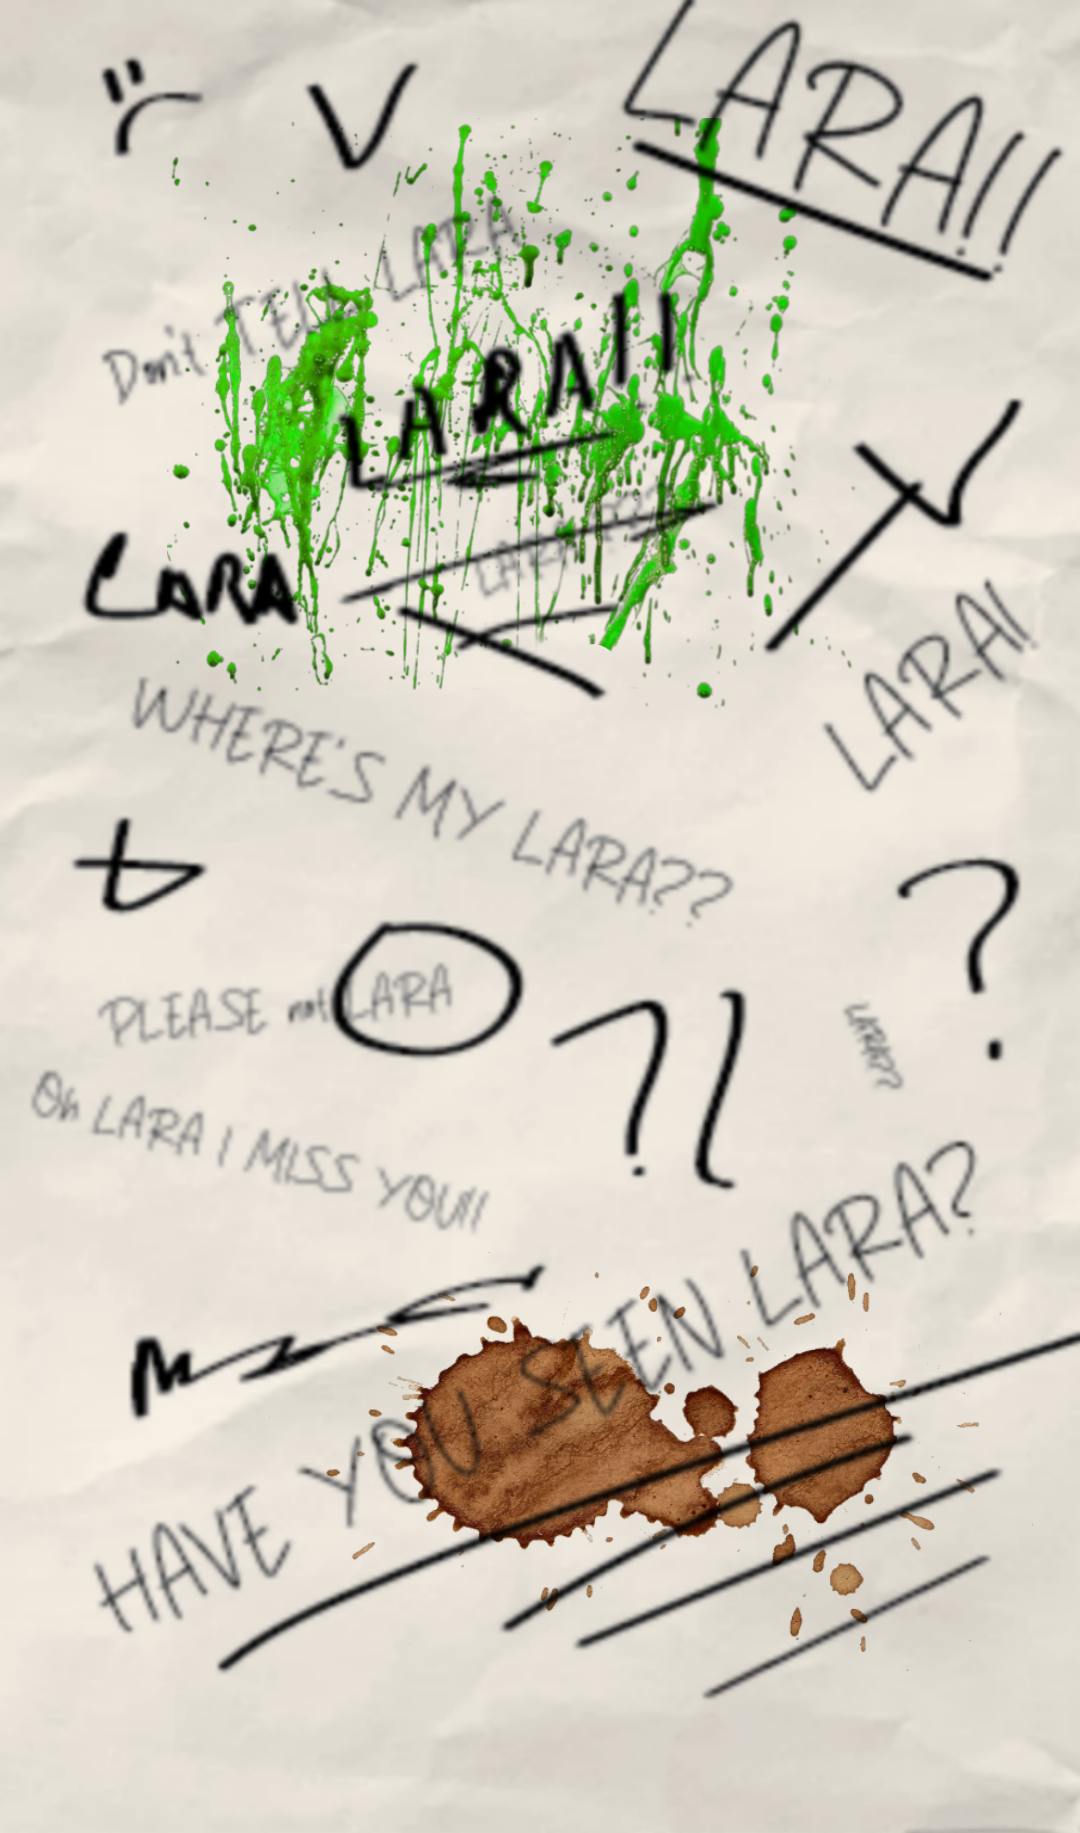 LARA!!
Don't TELL LARA
LARA!!
LARA
LARA!
WHERE'S MY LARA??
?
PLEASE not LARA
?
LARA??
Oh LARA I MISS YOU!!
HAVE YOU SEEN LARA?